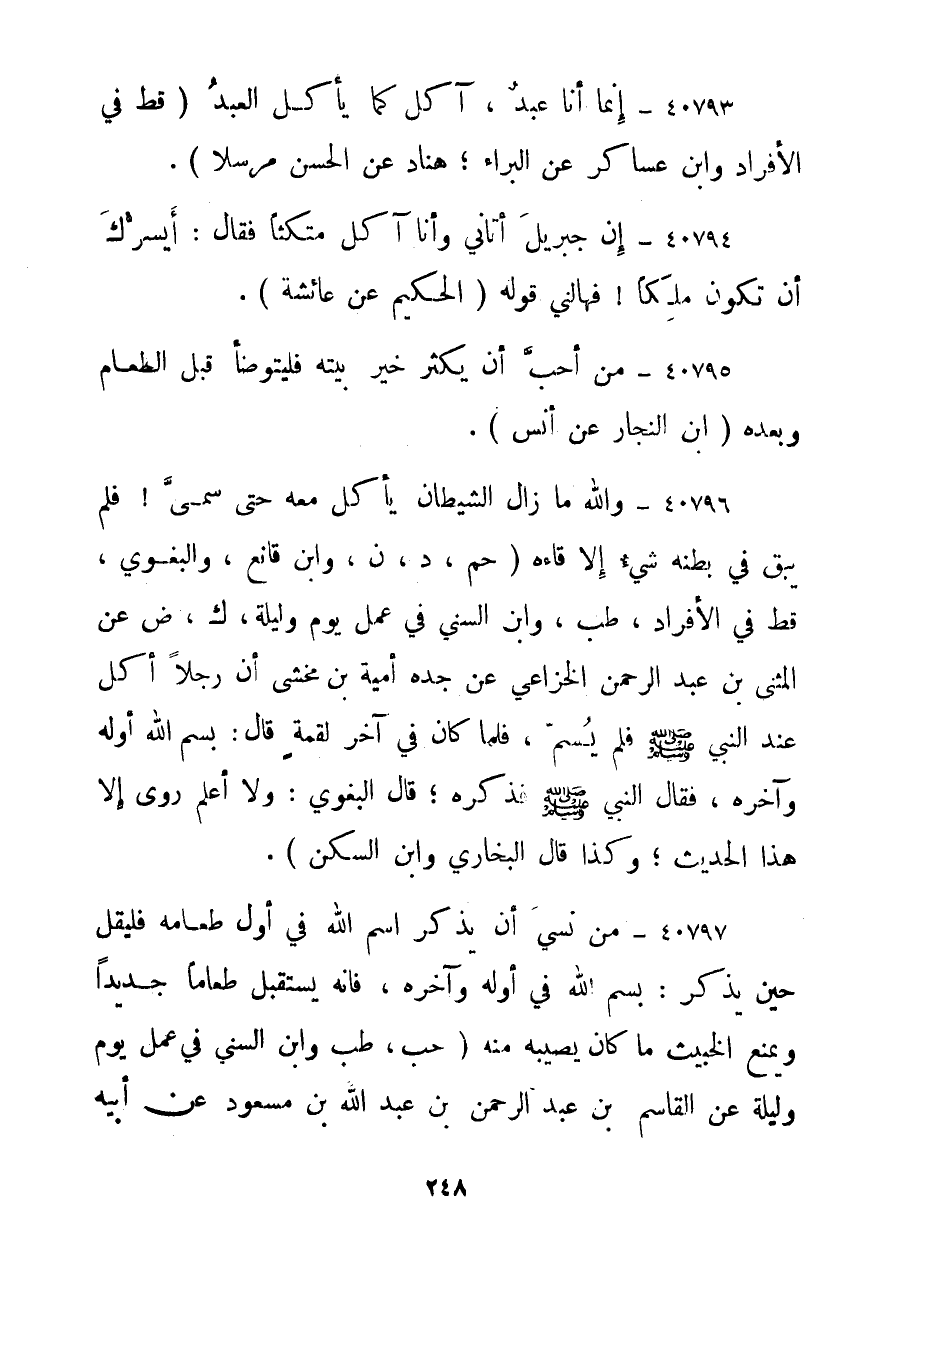 ٤٠٧٩٣ ـ إنما أنا عبدٌ ، آكل كما يأكل العبدُ ( قط في
الأفراد وابن عساكر عن البراء ؛ هناد عن الحسن مرسلا ) .
٤٠٧٩٤ ـ إن جبريلَ أتاني وأنا آكل متكئاً فقال : أَيسرُّكَ
أن تكون ملِكاً ! فهالني قوله ( الحكيم عن عائشة ) .
٤٠٧٩٥ ـ من أحبَّ أن يكثر خير بيته فليتوضأ قبل الطعام
وبعده ( ابن النجار عن أنس ) .
٤٠٧٩٦ ـ والله ما زال الشيطان يأكل معه حتى سمىَّ ! فلم
يبق في بطنه شيء إلا قاءه ( حم ، د ، ن ، وابن قانع ، والبغوي ،
قط في الأفراد ، طب ، وابن السني في عمل يوم وليلة ، ك ، ض عن
المثنى بن عبد الرحمن الخزاعي عن جده أمية بن مخشى أن رجلاً أكل
عند النبي ﷺ فلم يُسم ، فلما كان في آخر لقمةٍ قال : بسم الله أوله
وآخره ، فقال النبي ﷺ فذكره ؛ قال البغوي : ولا أعلم روى إلا
هذا الحديث ؛ وكذا قال البخاري وابن السكن ) .
٤٠٧٩٧ ـ من نسيَ أن يذكر اسم الله في أول طعامه فليقل
حين يذكر : بسم الله في أوله وآخره ، فانه يستقبل طعاماً جديداً
ويمنع الخبيث ما كان يصيبه منه ( حب ، طب وابن السني في عمل يوم
وليلة عن القاسم بن عبد الرحمن بن عبد الله بن مسعود عن أبيه
٢٤٨